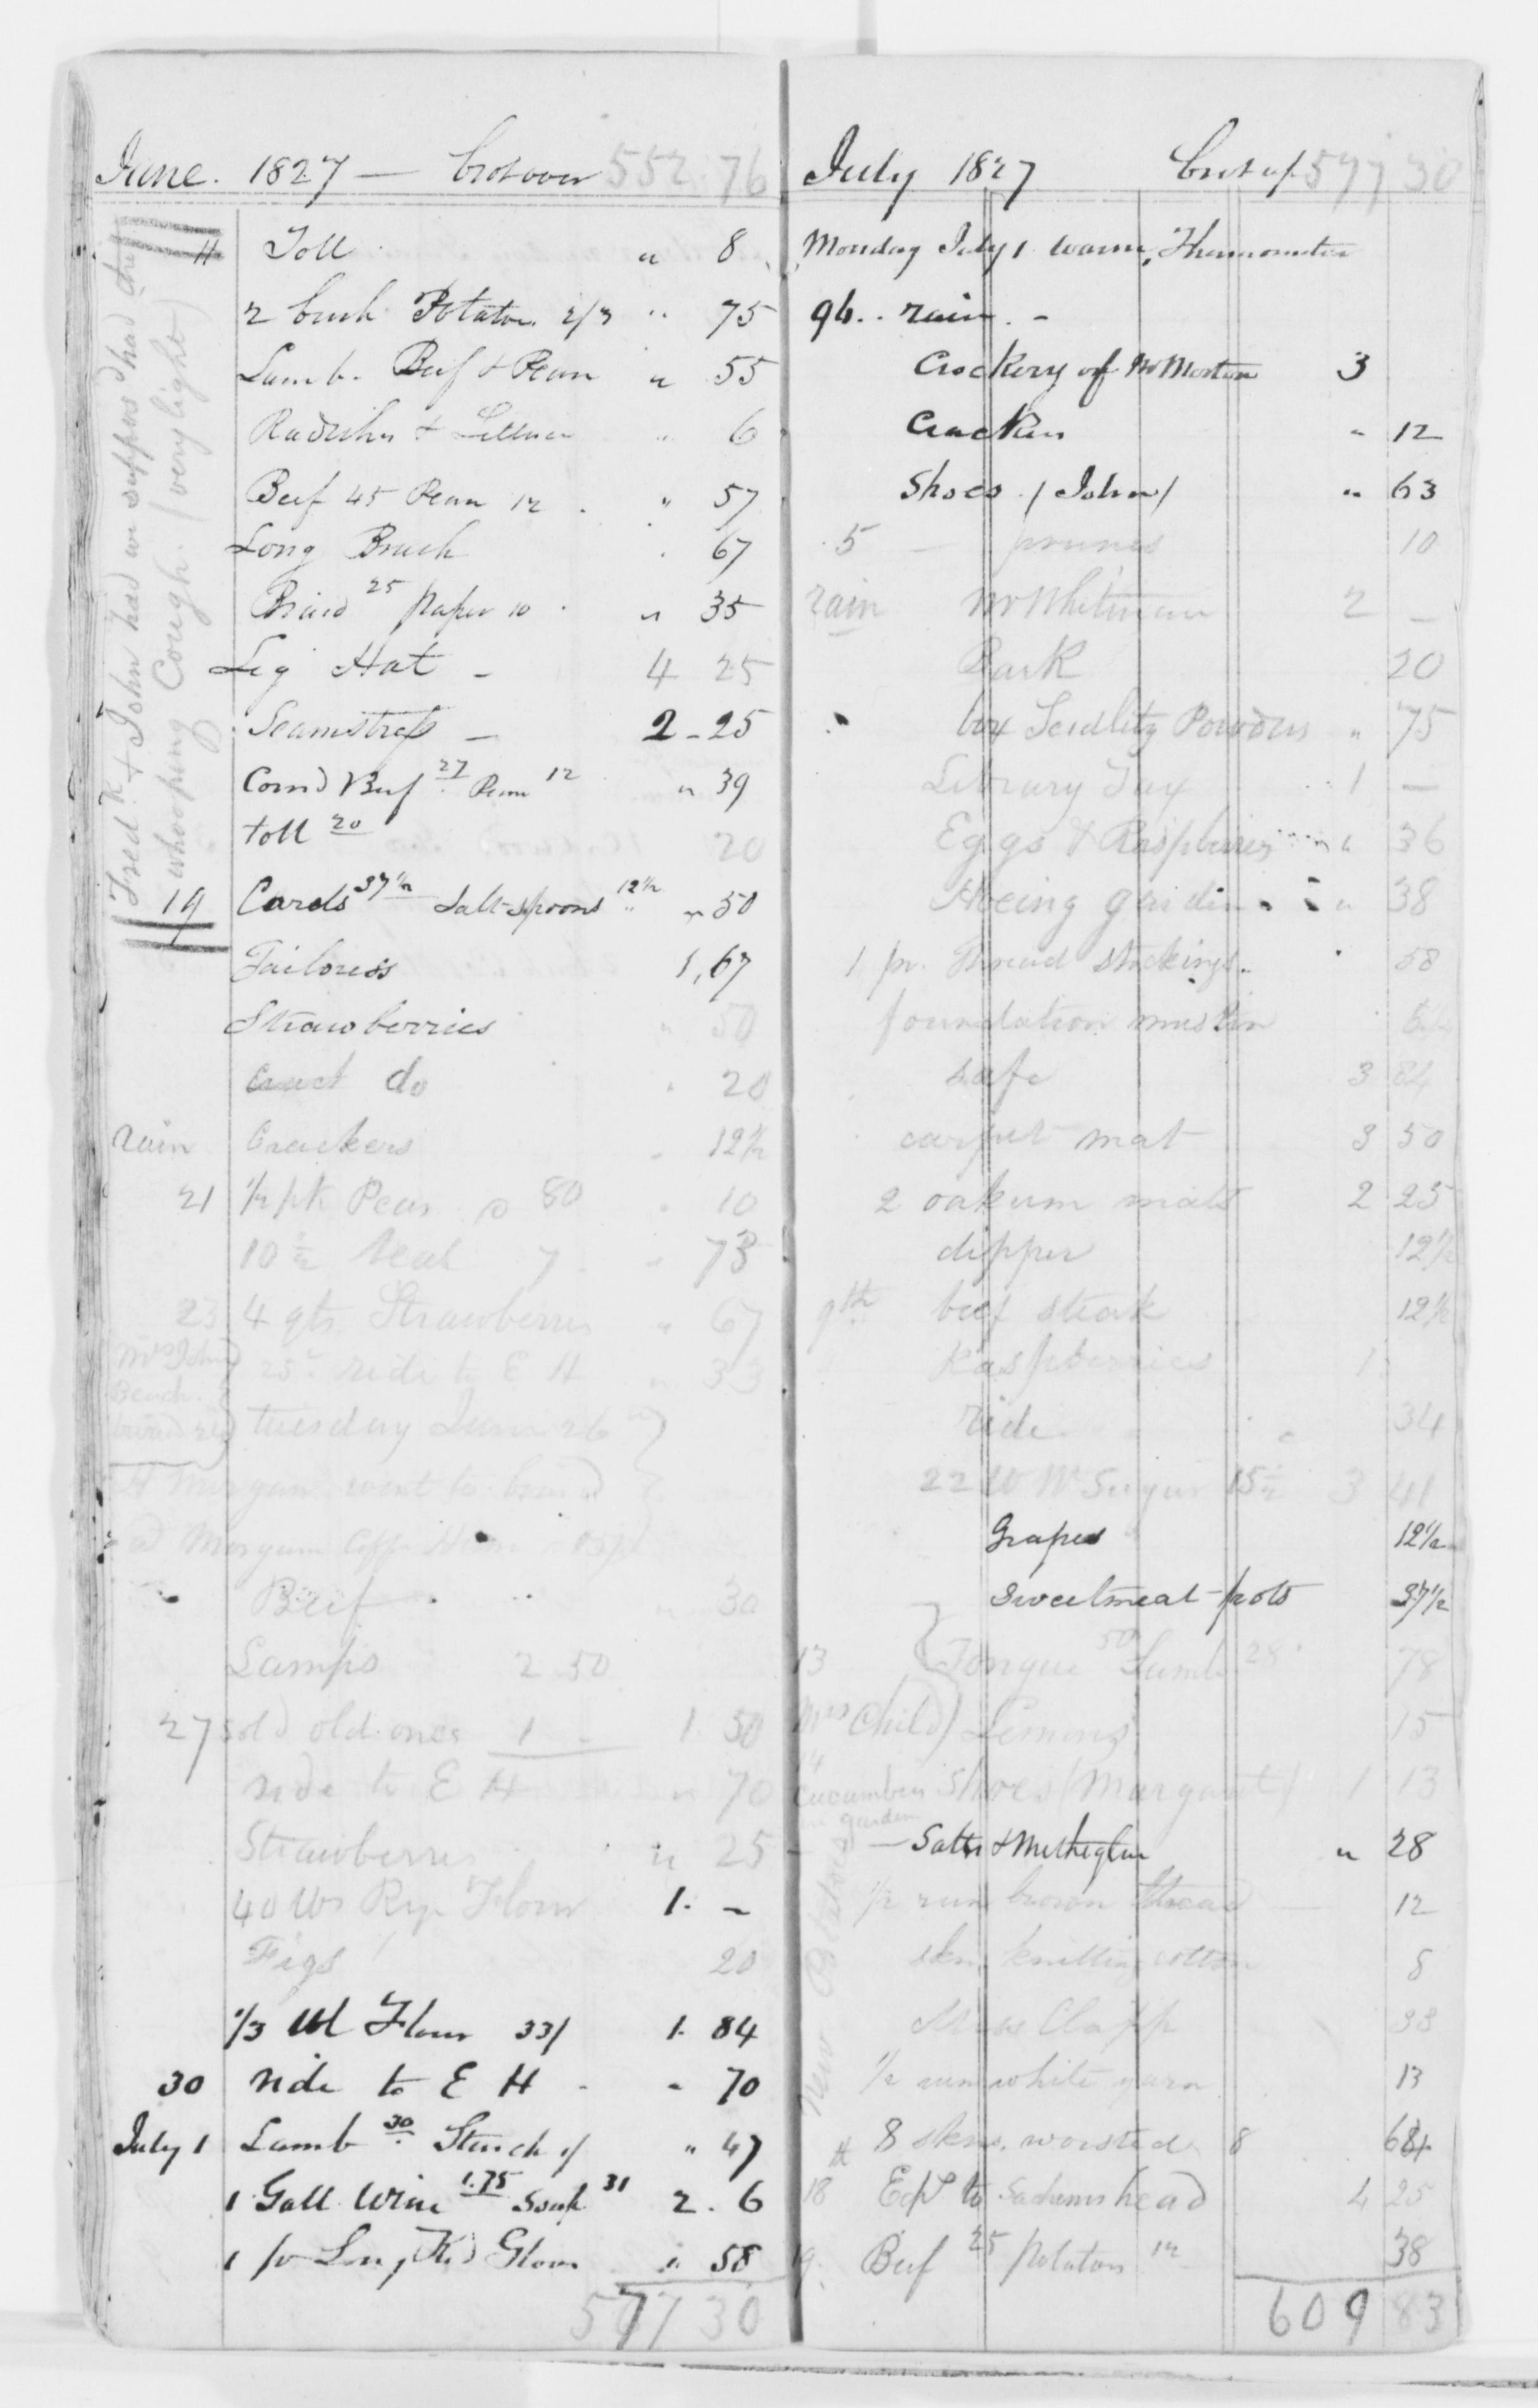 June. 1827 — Brot over 552.76
Toll " 8
2 bush Potatoes 2/3 " 75
Lamb. Beef & Peas " 55
Radishes & Lettuce " 6
Beef 45 Peas 12 . " 57
Long Brush . 67
Braid 25 paper 10 . " 35
Leg Hat — 4 25
Seamstress — 2 - 25
Cornd Beef 27 Peas 12 " 39
toll 20 20
19 Cards 37½ Salt spoons 12½ " 50
Tailoress 1,67
Strawberries " 50
do . 20
rain Crackers . 12½
21 ½ pk Peas @ 80 . 10
10½ Veal 7 . " 73
23 4 qts Strawberries " 67
25 ride to E H " 33
Mrs John
Beach
tuesday June 26
H Morgan went to
Morgan
Beef . " 30
Lamps 2 50
27 sold old ones 1 - 1. 50
ride to E H " 70
Strawberries " 25
40 lbs Rye Flour 1. —
Figs 20
⅓ bbl Flour 33/ 1. 84
30 ride to E H - - 70
July 1 Lamb 30 Starch 1/ " 47
1 Gall. Wine 1.75 Soap 31 2. 6
1 pr Long Kid Gloves " 58
577 30
Fredk & John had we suppose had the
whooping Cough. (very light)
July 1827 Brot up 577 30
Monday July 1 warm, Thermometer
96.. rain. -
Crockery of Mr Morton 3
Crackers " 12
Shoes (John) " 63
5 — prunes 10
rain Mr Whitman 2 —
Bark 20
box Seidlitz Powders " 75
Library Tax 1 —
Eggs & Raspberries " 36
Hoeing garden " 38
1 pr. Thread stockings. 58
foundation muslin
safe 3 84
carpet mat 3 50
2 oakum mats 2 25
dipper 12½
9th beef steak 12½
Raspberries 1
ride 34
22 lb W Sugar 15½ 3 41
Grapes 12½
Sweetmeat pots 37½
13 Tongue 50 Lamb 28 78
Mrs Child) Lemons 15
14 Shoes (Margaret) 1 13
Cucumbers
in garden
— Salts & Metheglin " 28
½ run brown thread — 12
skn knitting cotton 8
Miss Clapp 33
½ run white yarn 13
8 skns. worsted 8 64
18 Expd to Sachems head 4 25
19. Beef 25 Potatoes 12 38
609 83
New Potatoes